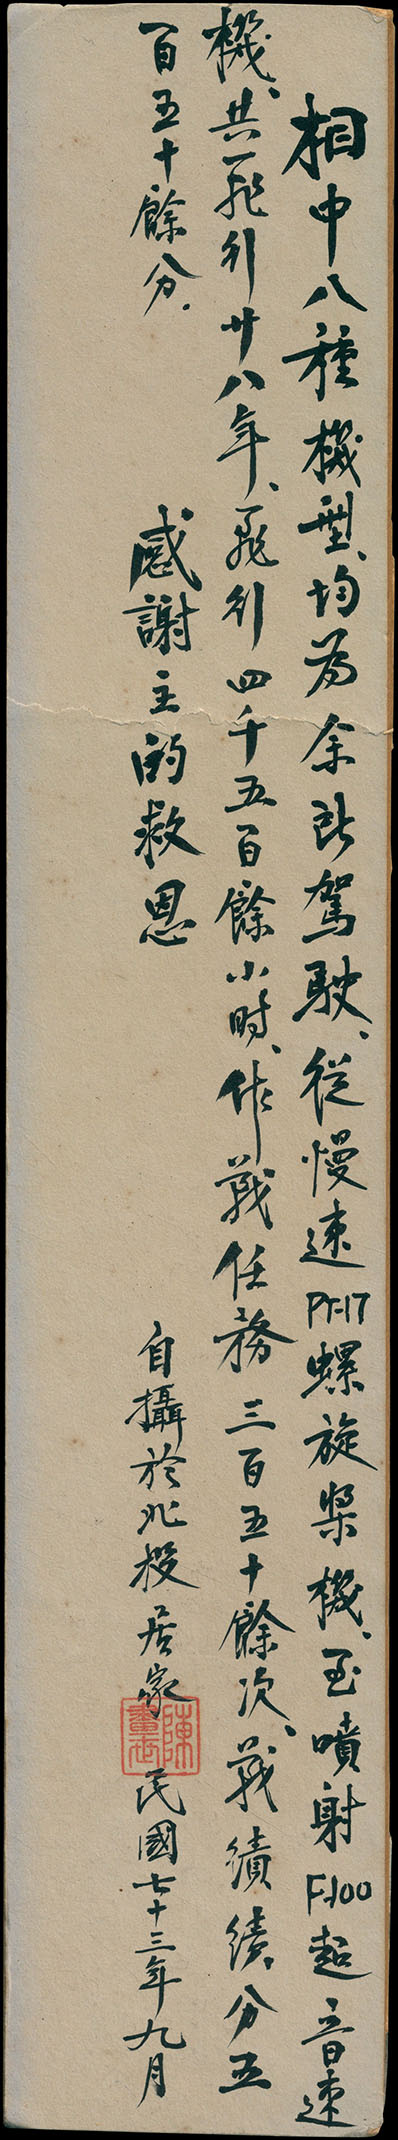 相中八種機型、均為余所駕駛、從慢速PT-17螺旋槳機、至噴射F-100超音速
機、共飛行廿八年、飛行四千五百餘小時、作戰任務三百五十餘次、戰績績分五
百五十餘分.
感謝主的救恩
自攝於北投居家 民國七十三年九月
陳